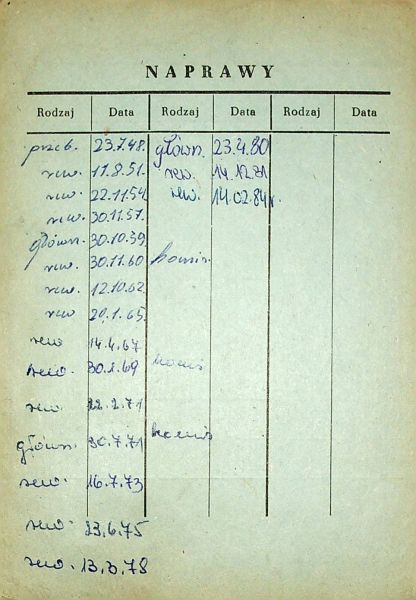 NAPRAWY
Rodzaj Data Rodzaj Data Rodzaj Data
przeb. 23.7.48. główn. 23.4.80
rew. 11.8.51. rew. 14.12.81
rew. 22.11.54 rew. 14.02.84r.
rew. 30.11.57.
główn. 30.10.59
rew. 30.11.60 komis.
rew. 12.10.62
rew 20.1.65
rew 14.4.67
rew. 30.1.69 komis
rew. 22.2.71
główn. 30.7.71 komis
rew. 16.7.73
rew. 23.6.75
rew. 13.3.78